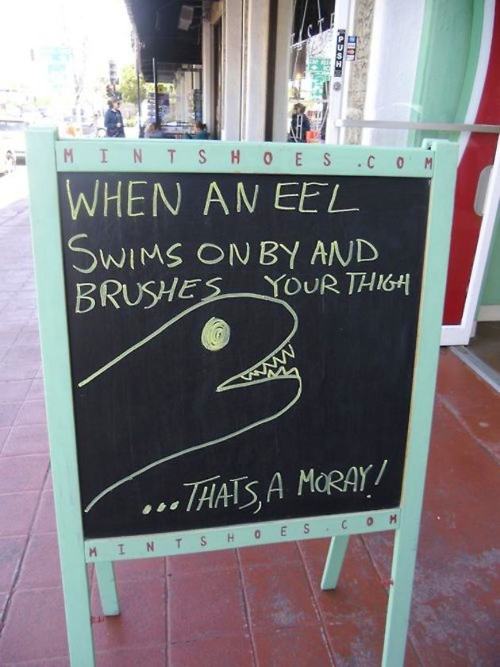 PUSH
MINTSHOES.COM
WHEN AN EEL
SWIMS ON BY AND
BRUSHES YOUR THIGH
...THATS, A MORAY!
MINTSHOES.COM